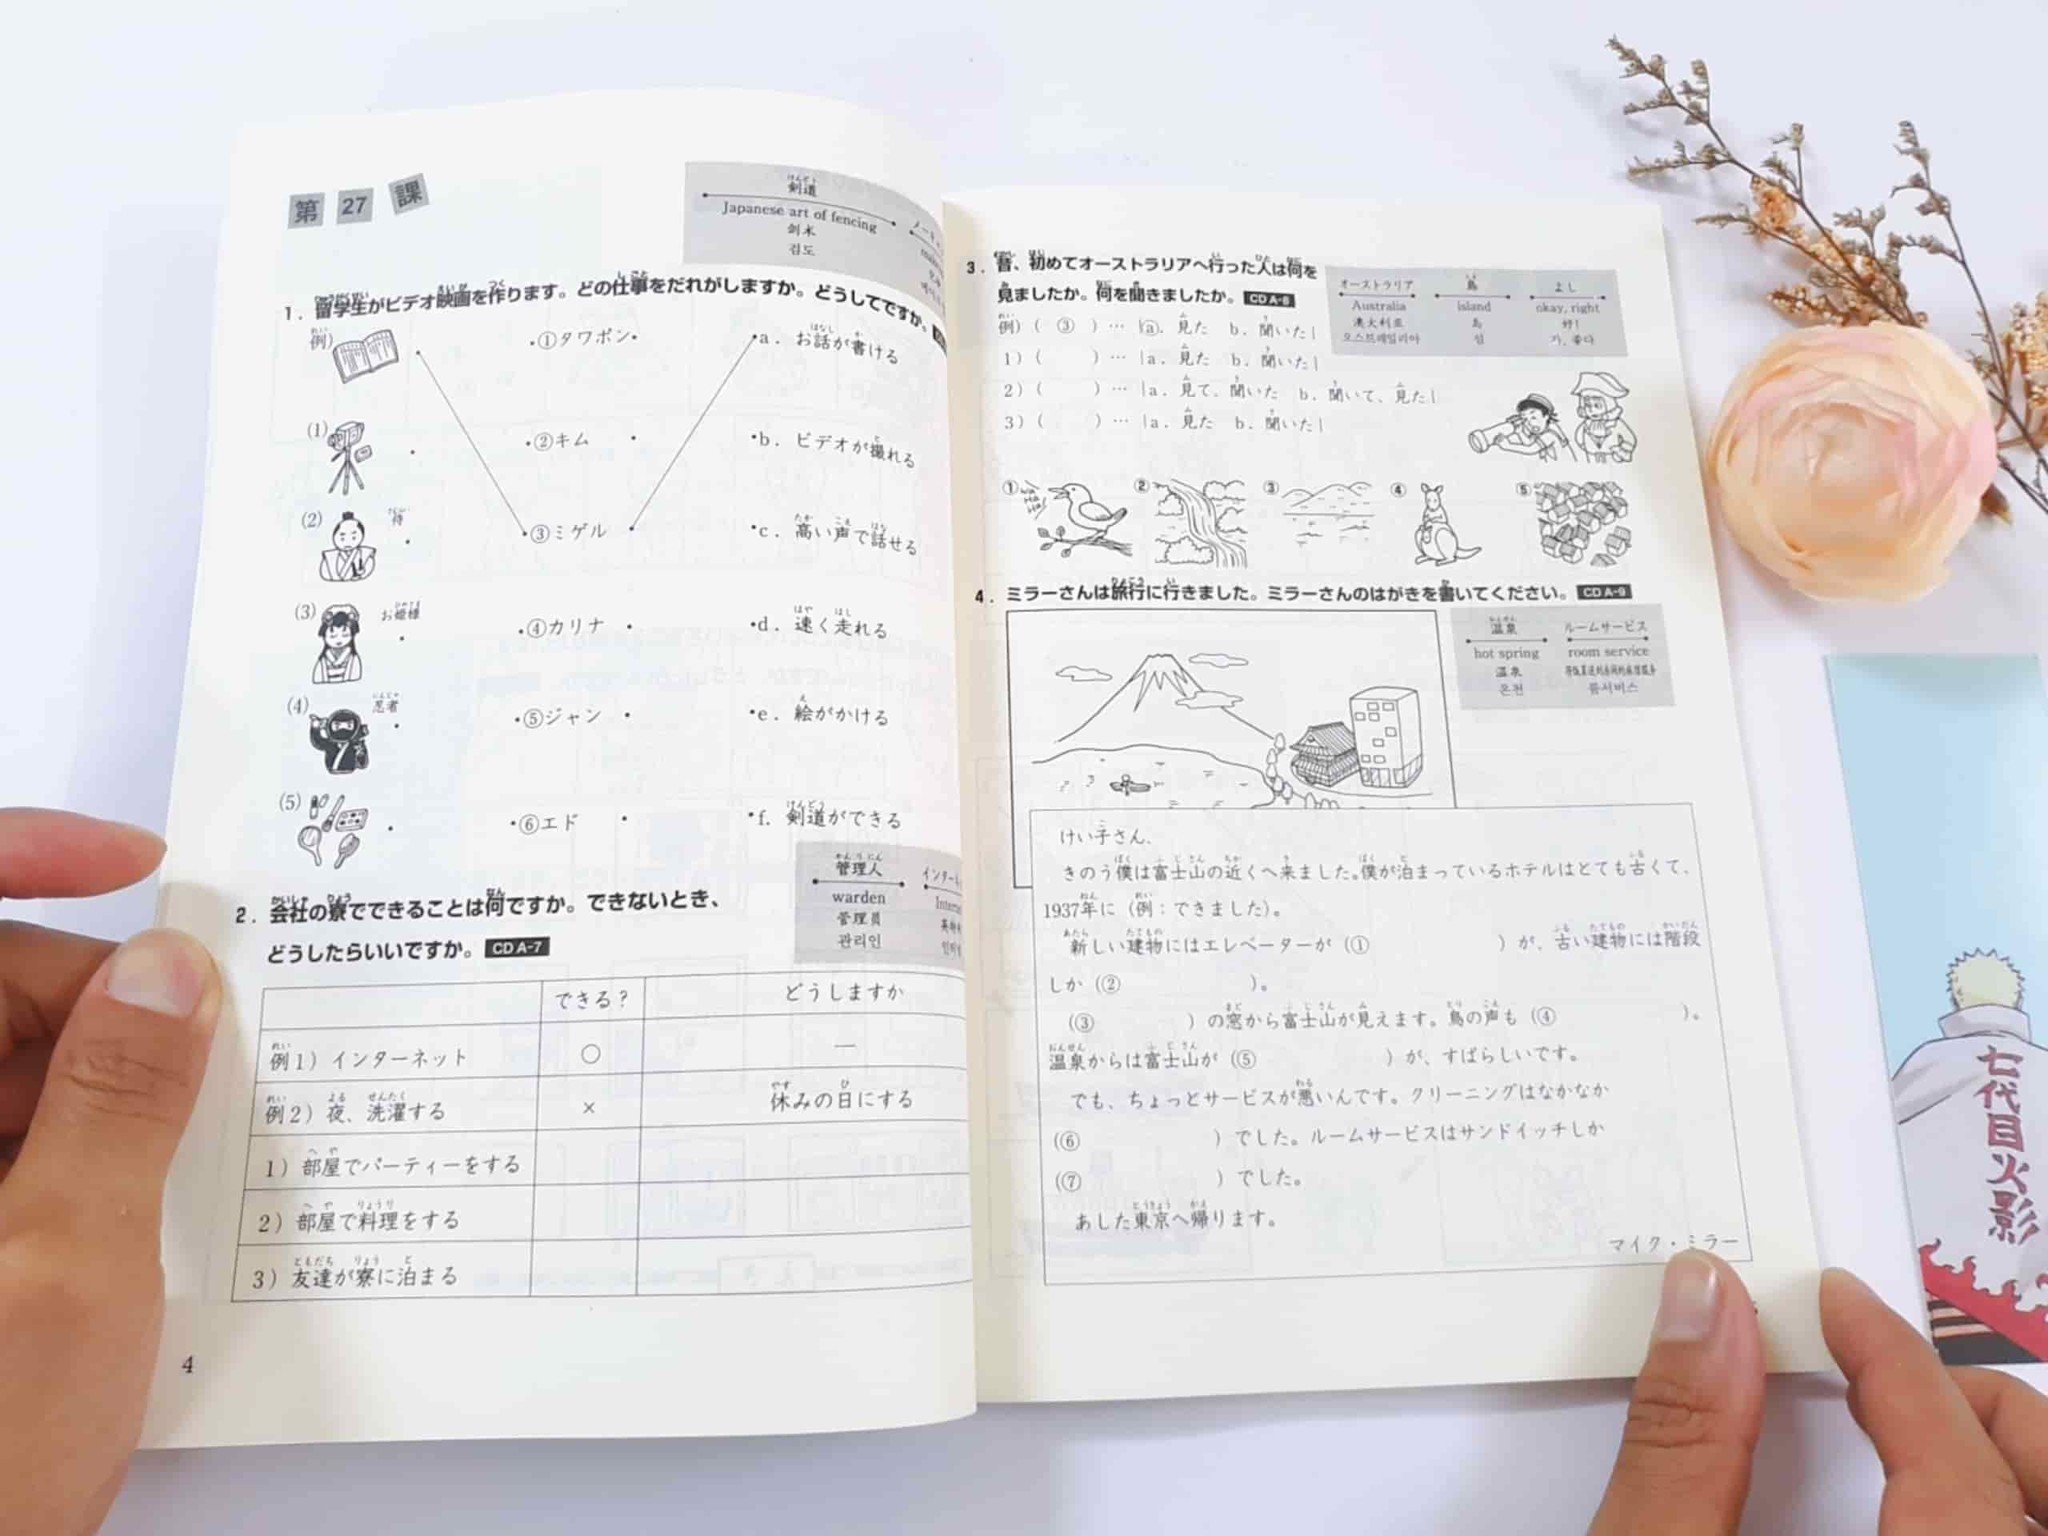 第27課
剣道
Japanese art of fencing
剑术
검도
1．留学生がビデオ映画を作ります。どの仕事をだれがしますか。どうしてですか。
例）
・①タワポン・
・a．お話が書ける
(1)
・②キム ・
・b．ビデオが撮れる
(2)
侍
・③ミゲル ・
・c．高い声で話せる
(3)
お姫様
・④カリナ ・
・d．速く走れる
(4)
忍者
・⑤ジャン ・
・e．絵がかける
(5)
・⑥エド ・
・f．剣道ができる
管理人
warden
管理员
관리인
2．会社の寮でできることは何ですか。できないとき、
どうしたらいいですか。 CD A-7
できる？ どうしますか
例1）インターネット ○ ―
例2）夜、洗濯する × 休みの日にする
1）部屋でパーティーをする
2）部屋で料理をする
3）友達が寮に泊まる
4
3．昔、初めてオーストラリアへ行った人は何を
見ましたか。何を聞きましたか。 CD A-8
オーストラリア
Australia
澳大利亚
오스트레일리아
島
island
岛
섬
よし
okay, right
好！
가, 좋다
例）（ ③ ）…｛ⓐ．見た b．聞いた｝
1）（ ）…｛a．見た b．聞いた｝
2）（ ）…｛a．見て、聞いた b．聞いて、見た｝
3）（ ）…｛a．見た b．聞いた｝
① ② ③ ④ ⑤
4．ミラーさんは旅行に行きました。ミラーさんのはがきを書いてください。 CD A-9
温泉
hot spring
温泉
온천
ルームサービス
room service
룸서비스
けい子さん、
きのう僕は富士山の近くへ来ました。僕が泊まっているホテルはとても古くて、
1937年に（例：できました）。
新しい建物にはエレベーターが（① ）が、古い建物には階段
しか（② ）。
（③ ）の窓から富士山が見えます。鳥の声も（④ ）。
温泉からは富士山が（⑤ ）が、すばらしいです。
でも、ちょっとサービスが悪いんです。クリーニングはなかなか
（⑥ ）でした。ルームサービスはサンドイッチしか
（⑦ ）でした。
あした東京へ帰ります。
マイク・ミラー
七代目火影